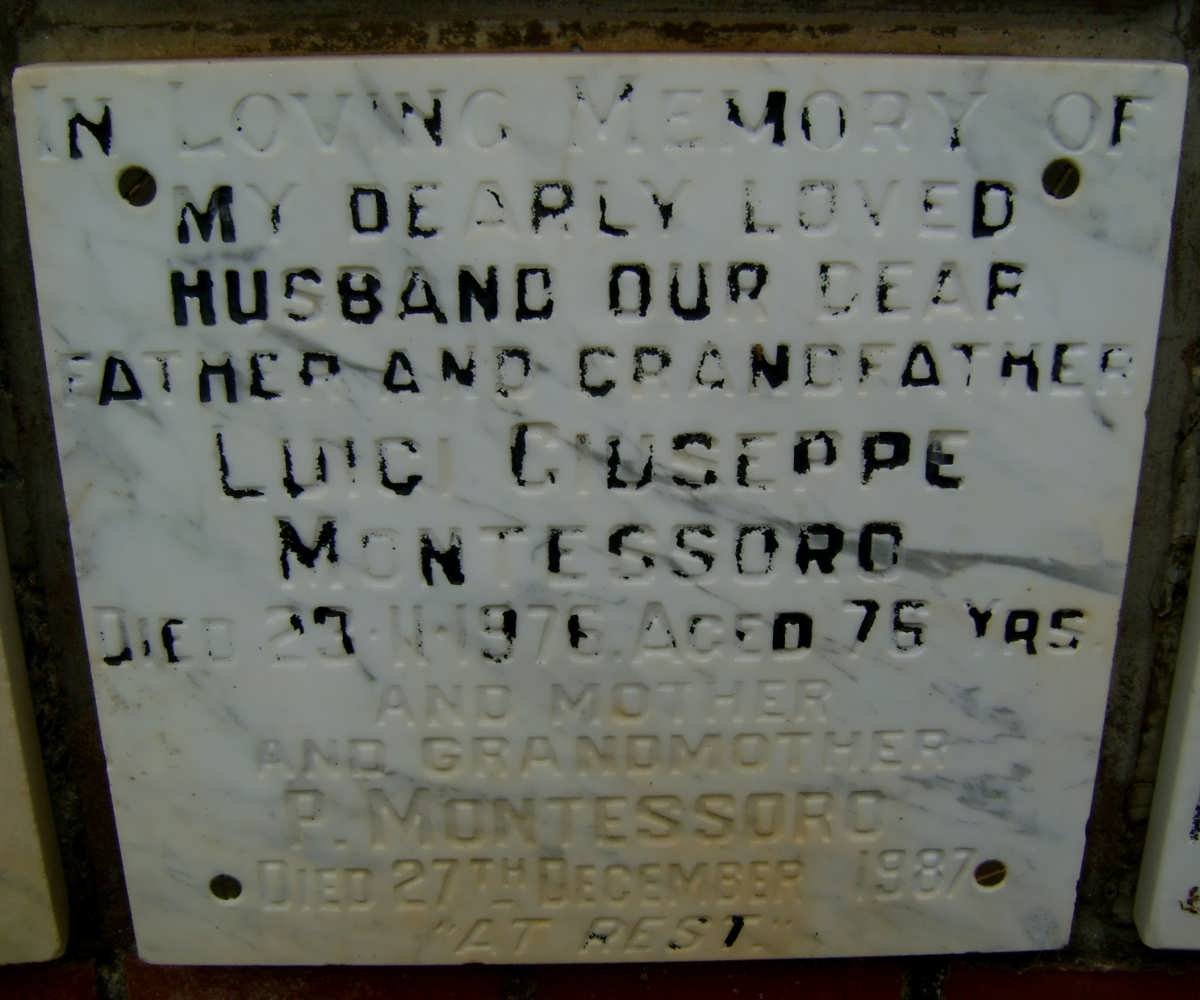 IN LOVING MEMORY OF
MY DEARLY LOVED
HUSBAND OUR DEAR
FATHER AND GRANDFATHER
LUIGI GIUSEPPE
MONTESSORO
DIED 23·11·1976. AGED 76 YRS.
AND MOTHER
AND GRANDMOTHER
P. MONTESSORO
DIED 27TH DECEMBER 1987
"AT REST."